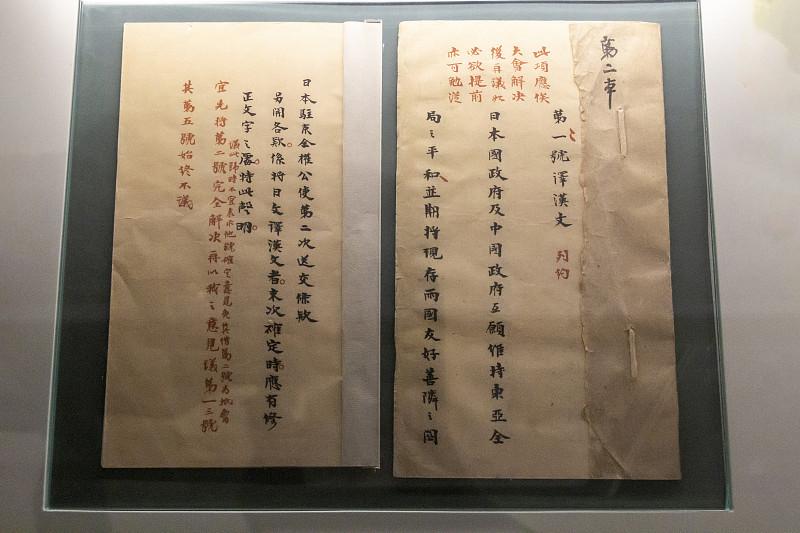 第二本
此項應俟
大會解決
後再議如
必欲提前
亦可勉從
第一號譯漢文
日本國政府及中國政府互願維持東亞全
局之平和並期將現存兩國友好善隣之関
日本駐京全權公使第二次送交條款
另開各款係將日文譯漢文者末次確定時應有修
正文字之處特此聲明
議此號時不宜表示他號確定意見免其借第二號為
宜先將第二號完全解決再以我之意見議第一三號
其第五號始終不議